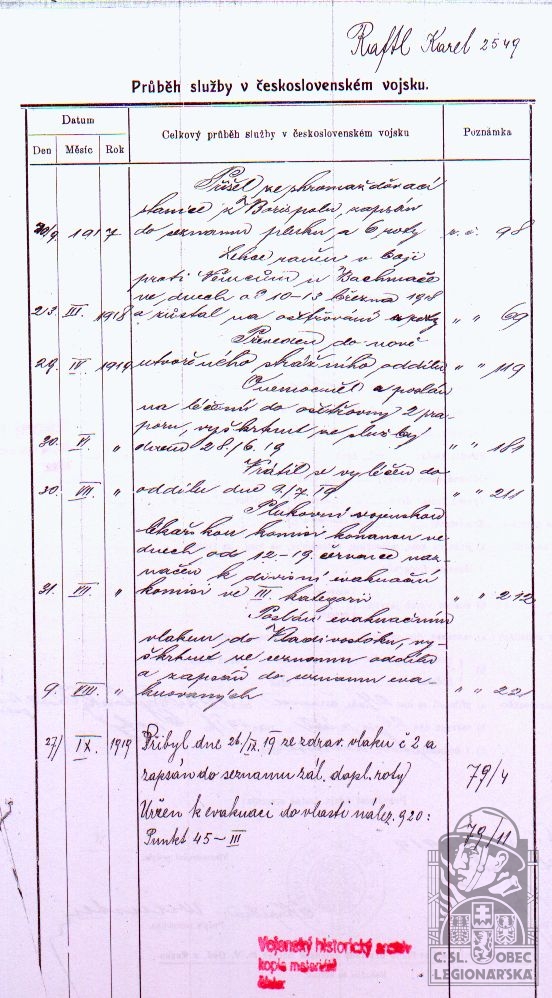 Raftl Karel 2549
Průběh služby v československém vojsku.
Datum
Celkový průběh služby v československém vojsku
Poznámka
Den Měsíc Rok
Přišel ze shromažďovací
stanice z Borispolu, zapsán
30/9. 1917 do seznamu pluku, a 6 roty 98
Lehce raněn v boji
proti Němcům u Bachmače
ve dnech od 10-13 března 1918
23. III. 1918 a zůstal na ošetřování u roty " " 69
Převeden do nově
29. IV 1919 utvořeného strážního oddílu " " 119
Onemocněl a poslán
na léčení do ošetřovny 2/pra-
poru, vyškrtnut ze služby
30. VI " dnem 28./6. 19 " " 181
Vrátil se vyléčen do
30. VII. " oddílu dne 9./7. 19 " " 211
Plukovní vojenskou
lékařskou komisí konanou ve
dnech od 12-19. července naz-
načen k divisní evakuační
31. VII " komisi ve III. kategorii " " 212
Poslán evakuačním
vlakem do Vladivostoku, vy-
škrtnut ze seznamu oddílu
a zapsán do seznamu eva-
9. VIII. " kuovaných " " 221
27/ IX. 1919 Přibyl dne 26./IX. 19 ze zdrav. vlaku č 2 a
zapsán do seznamu zál. dopl. roty 79/4
Určen k evakuaci do vlasti nález. 920:
Punkt 45-III 79/11
Vojenský historický archiv
kopie materiálu
číslo:
ČSL. OBEC
LEGIONÁŘSKÁ